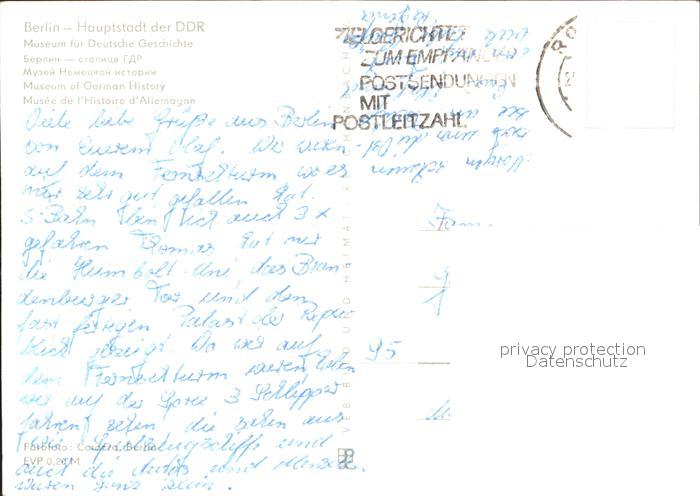 Berlin – Hauptstadt der DDR
Museum für Deutsche Geschichte
Берлин — столица ГДР
Музей Немецкой истории
Museum of German History
Musée de l'Histoire d'Allemagne
ZIELGERICHTET
ZUM EMPFÄNGER
POSTSENDUNGEN
MIT
POSTLEITZAHL
Viele liebe Grüße aus Berlin
von Eurem Olaf. Wir waren
auf dem Fernsehturm wo es
mir sehr gut gefallen hat.
S-Bahn bin ich auch 3x
gefahren Thomas hat mir
die Humbolt Uni das Bran-
denburger Tor und den
fast fertigen Palast der Repu-
blick gezeigt. Da wir auf
dem Fernsehturm waren
wir auf der Spree 3 Schlepper
fahren sehen die sahen aus
wie Spielzeugschiffe und
auch die Autos und Menschen
waren ganz klein.
Fam.
95
M.
VERLAG BILD UND HEIMAT
Farbfoto:
EVP 0,20 M
privacy protection
Datenschutz